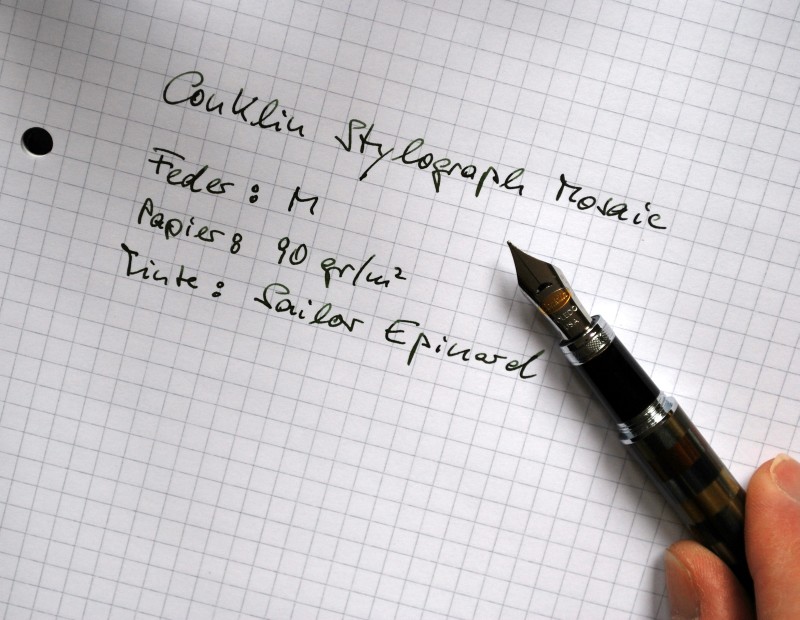 Conklin Stylograph Mosaic
Feder: M
Papier: 90 gr/m²
Tinte: Sailor Epinard